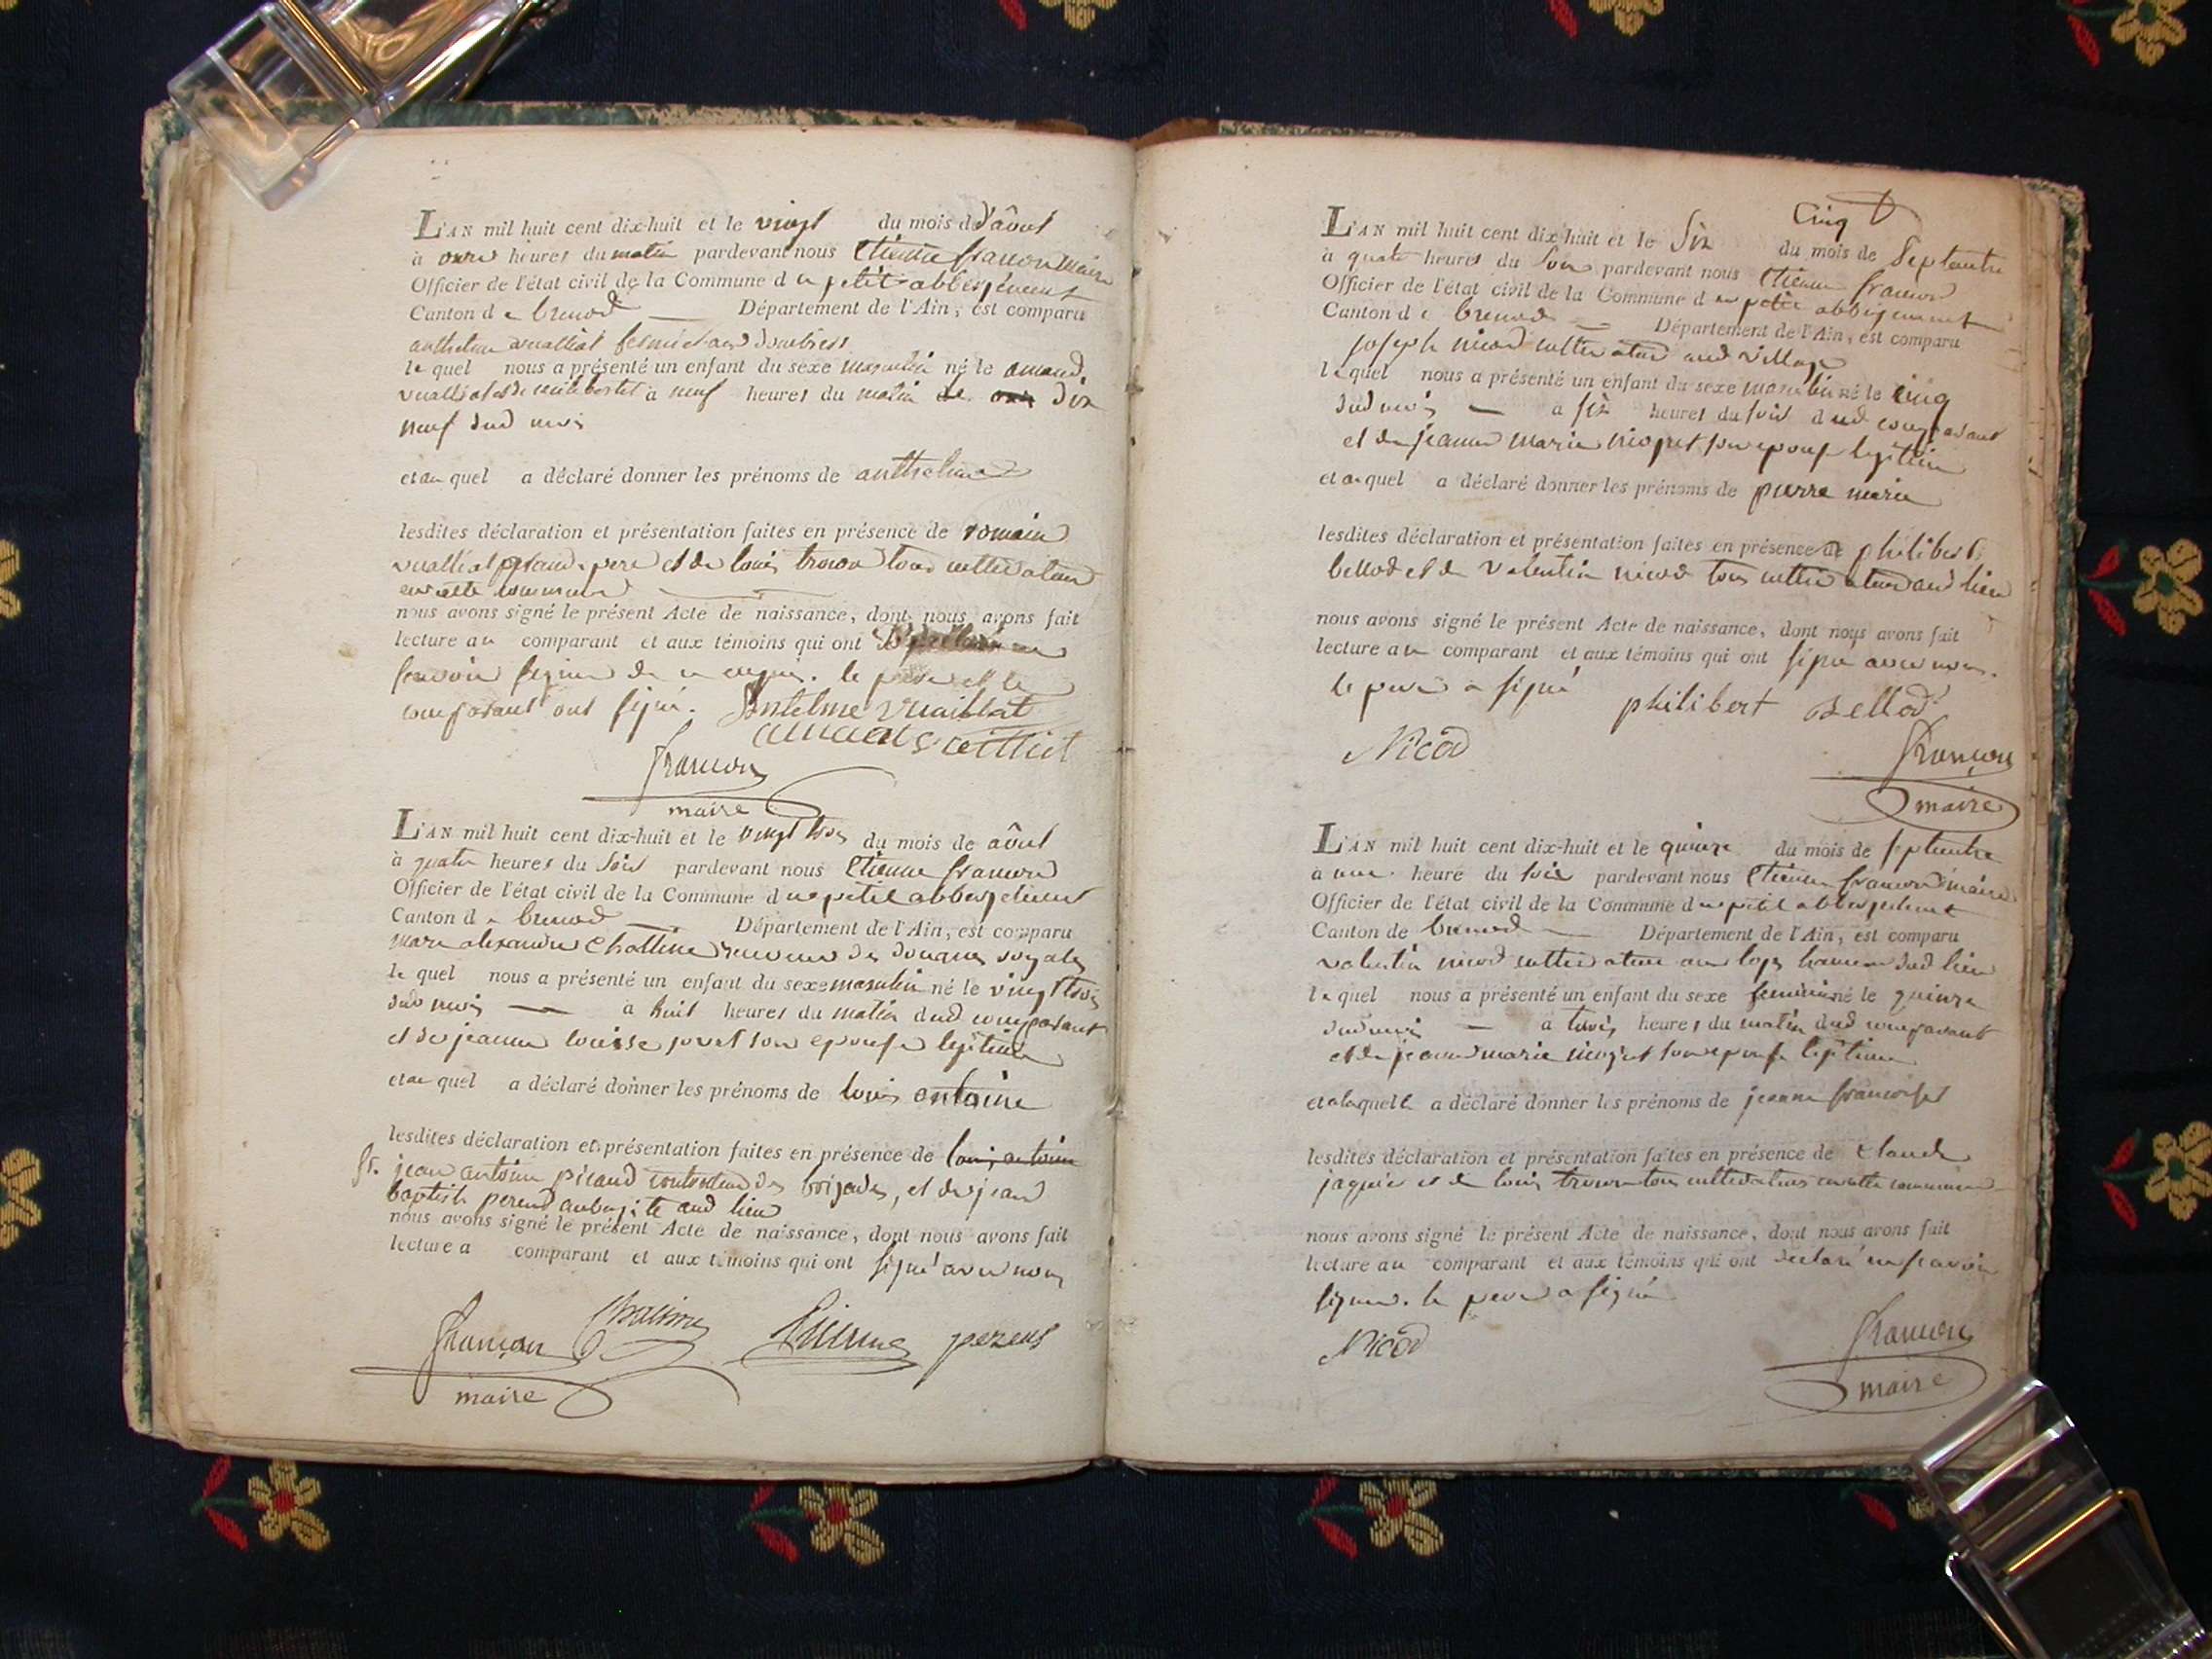 L'AN mil huit cent dix-huit et le vingt du mois d d'août
à onze heures du matin pardevant nous Etienne francon maire
Officier de l'état civil de la Commune d u petit abbergement
Canton d e brenod Département de l'Ain, est comparu
anthelme
le quel nous a présenté un enfant du sexe masculin né le amand
à neuf heures du matin le dix
neuf dud mois
et au quel a déclaré donner les prénoms de anthelme
lesdites déclaration et présentation faites en présence de romain
vualliat grand pere et de louis trocon tous cultivateurs
en cette commune
nous avons signé le présent Acte de naissance, dont nous avons fait
lecture au comparant et aux témoins qui ont
scavoir signer de ce enquis. le pere et le
comparant ont signé. Antelme Vuaillat
francon
maire
L'AN mil huit cent dix-huit et le vingt trois du mois de août
à quatre heures du soir pardevant nous Etienne francon
Officier de l'état civil de la Commune d u petit abbergement
Canton d e brenod Département de l'Ain, est comparu
marc alexandre Challine receveur des douanes royales
le quel nous a présenté un enfant du sexe masculin né le vingt trois
dud mois à huit heures du matin dud comparant
et de jeanne louisse jovet son epouse legitime
et au quel a déclaré donner les prénoms de louis antoine
lesdites déclaration et présentation faites en présence de louis antoine
jean antoine picaud controleur des brigades, et de jean
baptiste perend aubergiste aud lieu
nous avons signé le présent Acte de naissance, dont nous avons fait
lecture a comparant et aux témoins qui ont signé avec nous
francon
maire
Cinq
L'AN mil huit cent dix-huit et le Six du mois de Septembre
à quatre heures du soir pardevant nous Etienne francon
Officier de l'état civil de la Commune d u petit abbergement
Canton d e brenod Département de l'Ain, est comparu
joseph nicod cultivateur aud village
le quel nous a présenté un enfant du sexe masculin né le cinq
dud mois à six heures du soir dud comparant
et de jeanne marie niogret son epouse legitime
et au quel a déclaré donner les prénoms de pierre marie
lesdites déclaration et présentation faites en présence de philibert
bellod et de valentin nicod tous cultivateurs aud lieu
nous avons signé le présent Acte de naissance, dont nous avons fait
lecture au comparant et aux témoins qui ont signé avec nous.
le pere a signé philibert Bellod
Nicod
francon
maire
L'AN mil huit cent dix-huit et le quinze du mois de septembre
à une heure du soir pardevant nous Etienne francon maire
Officier de l'état civil de la Commune d u petit abbergement
Canton de brenod Département de l'Ain, est comparu
valentin nicod cultivateur hameau dud lieu
le quel nous a présenté un enfant du sexe feminin né le quinze
dud mois à trois heures du matin dud comparant
et de jeanne marie niogret son epouse legitime
et a laquelle a déclaré donner les prénoms de jeanne francoise
lesdites déclaration et présentation faites en présence de claude
et de louis trocon tous cultivateurs en cette commune
nous avons signé le présent Acte de naissance, dont nous avons fait
lecture au comparant et aux témoins qui ont declaré ne scavoir
signer. le pere a signé
Nicod
francon
maire